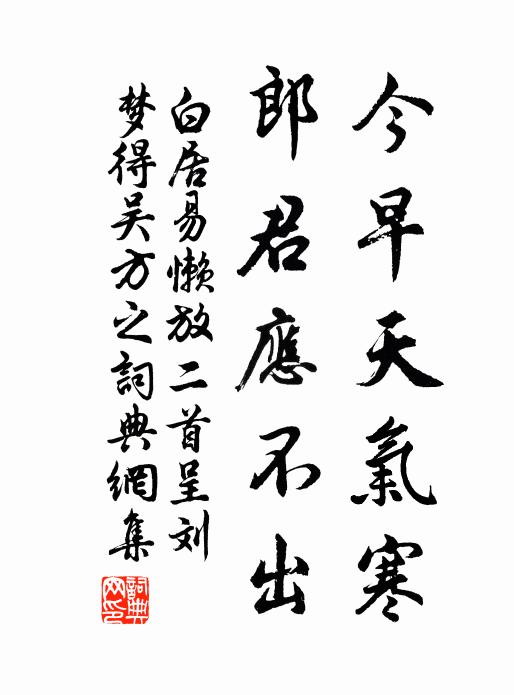 今早天氣寒
郎君應不出
白居易懒放二首呈刘
梦得吴方之詞典網集
詞典
网印